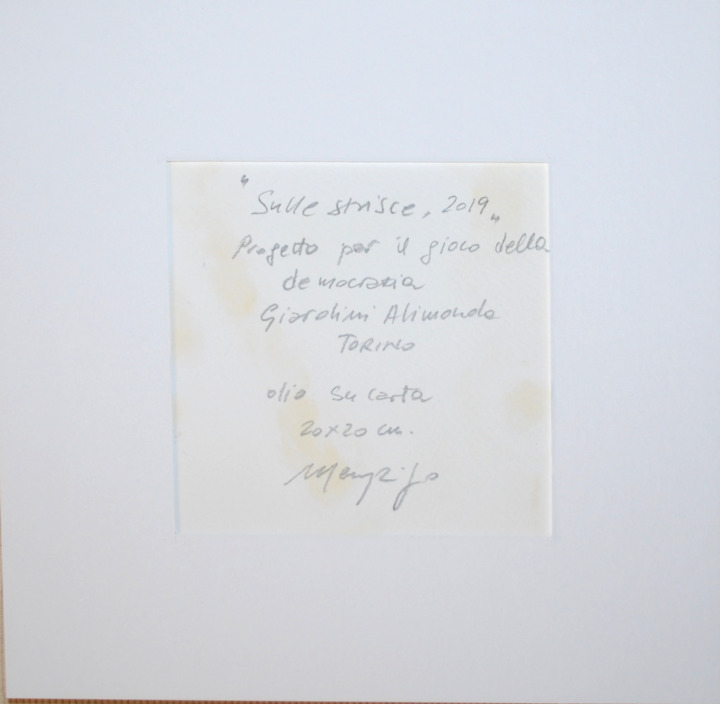 "Sulle strisce, 2019"
Progetto per il gioco della
democrazia
Giardini Alimonda
TORINO
olio su carta
20x20 cm.